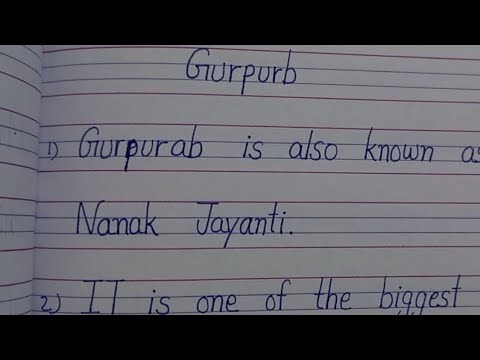 Gurpurb
1) Gurpurab is also known as
Nanak Jayanti.
2) IT is one of the biggest